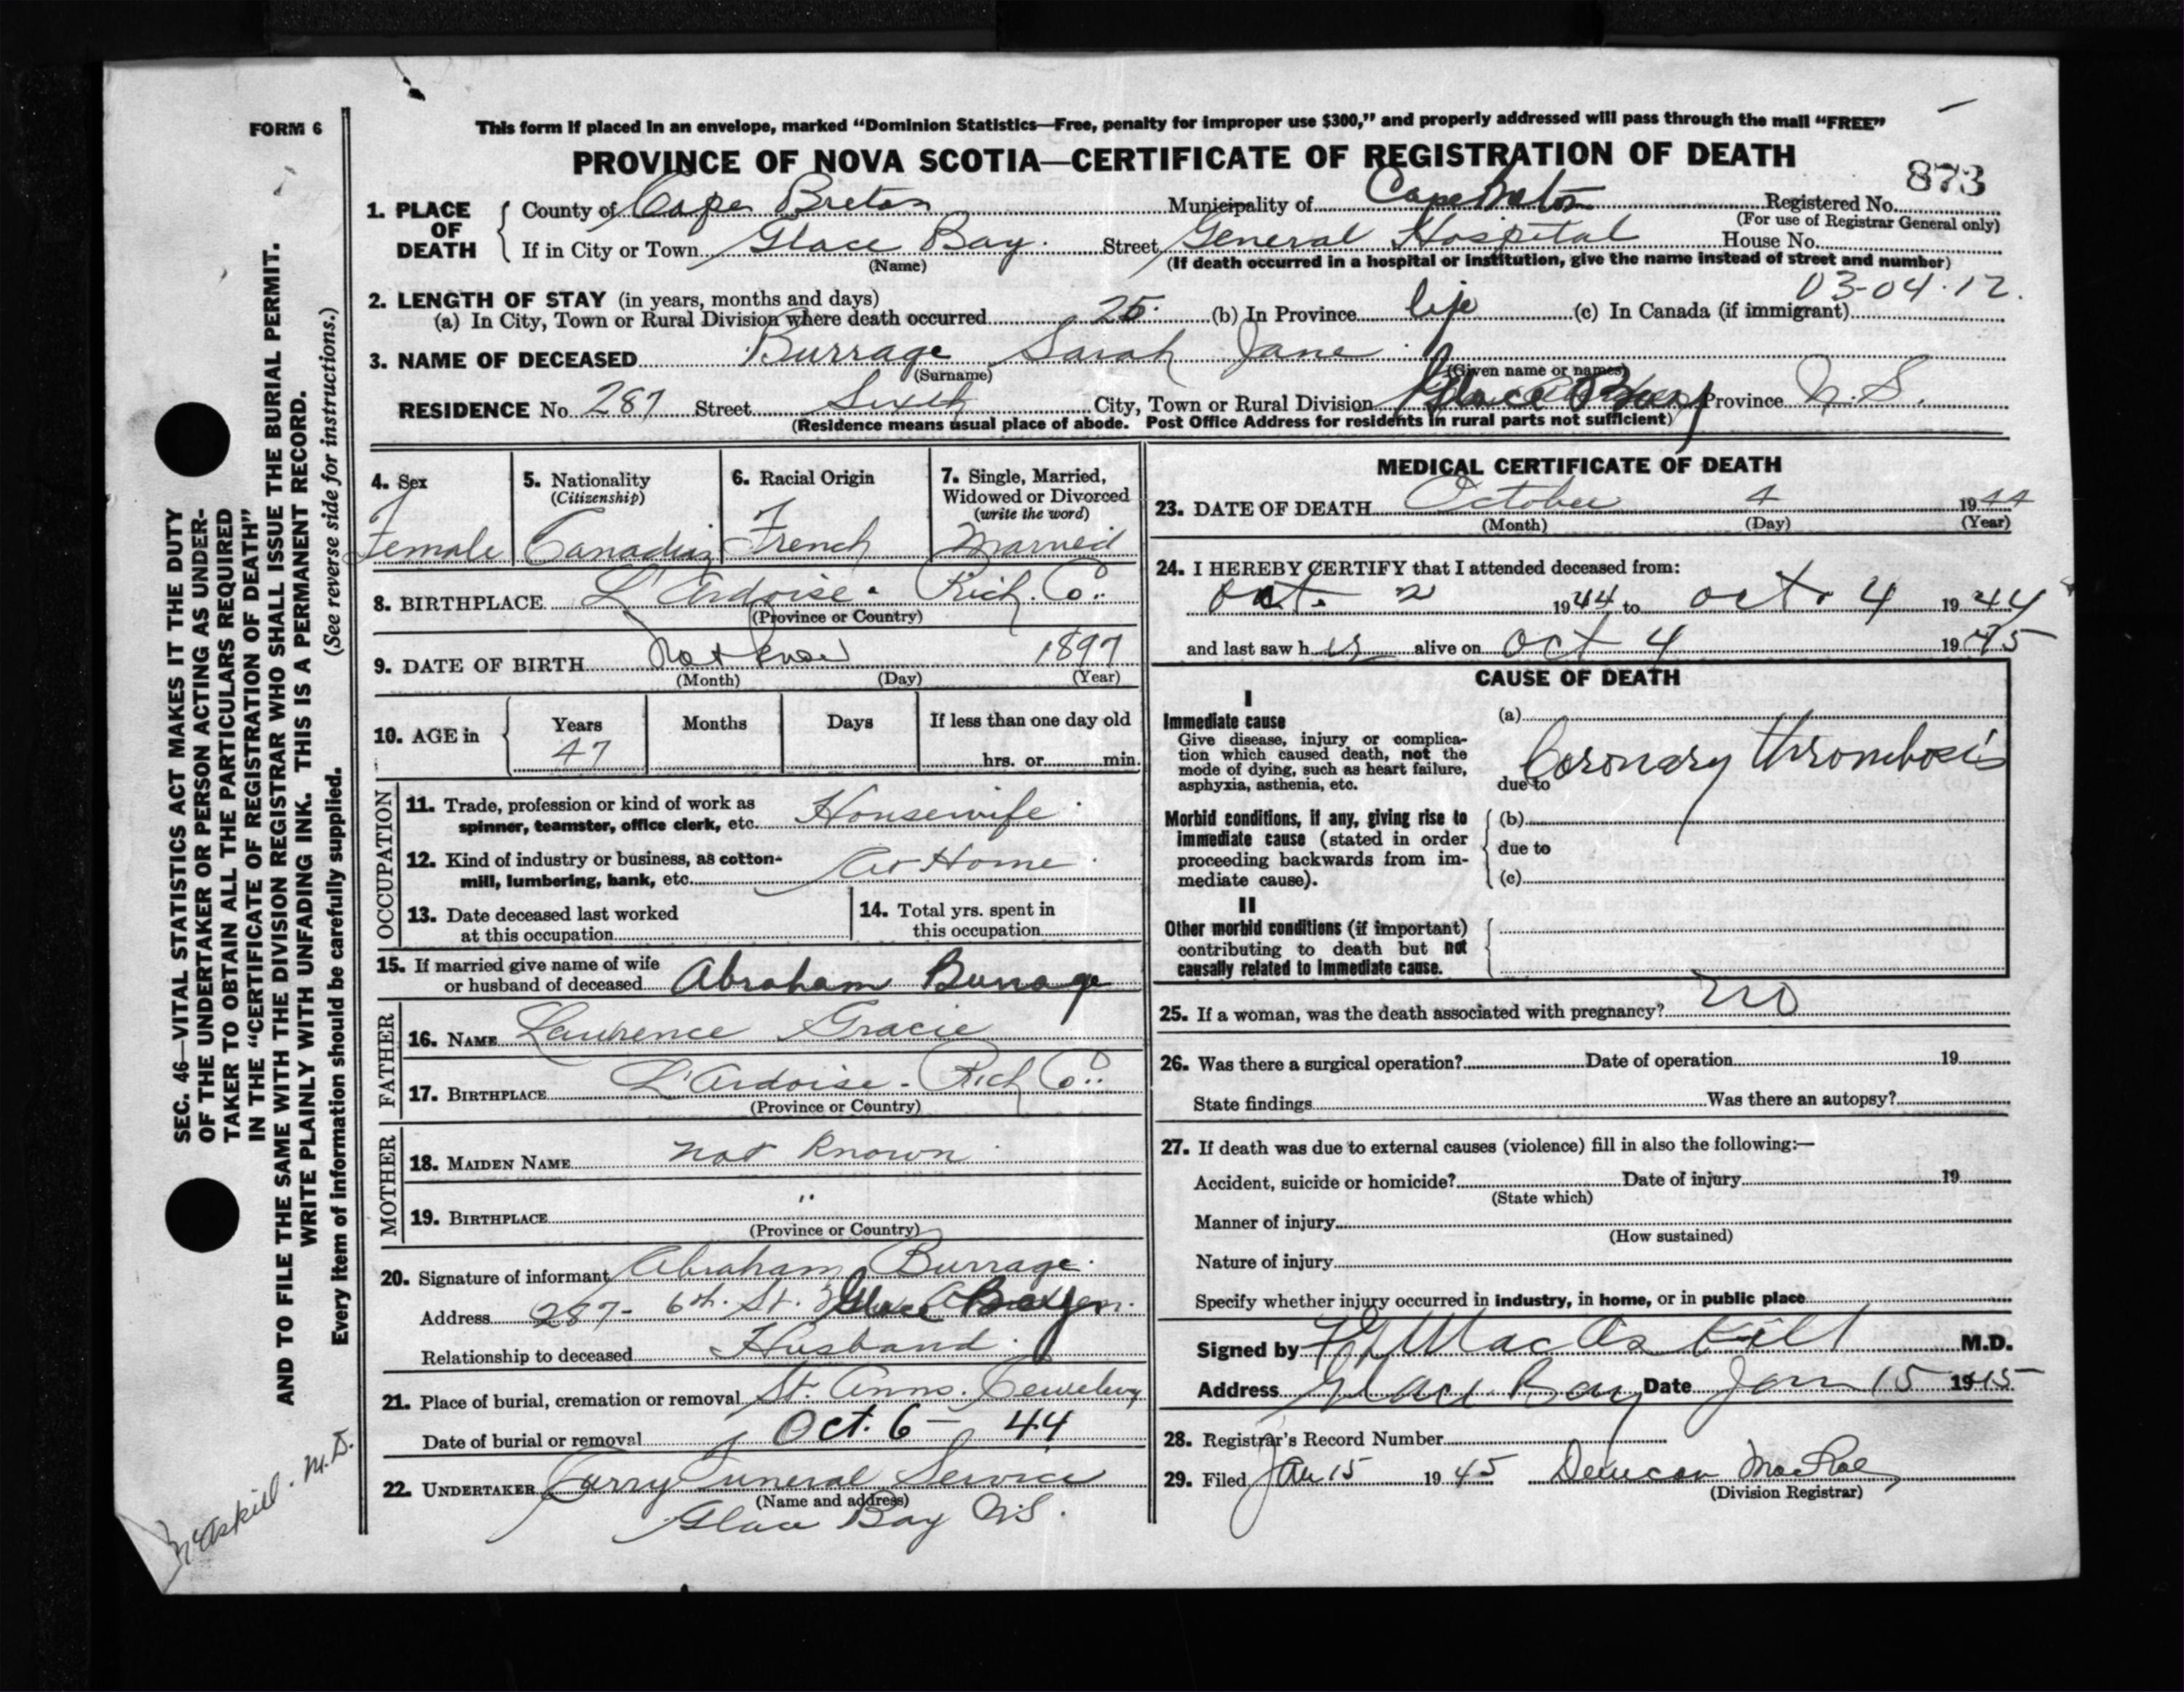 FORM 6
This form if placed in an envelope, marked “Dominion Statistics—Free, penalty for improper use $300,” and properly addressed will pass through the mail “FREE”
PROVINCE OF NOVA SCOTIA—CERTIFICATE OF REGISTRATION OF DEATH
873
1. PLACE OF DEATH
County of Cape Breton Municipality of Cape Breton Registered No.
(For use of Registrar General only)
If in City or Town Glace Bay. Street General Hospital House No.
(Name) (If death occurred in a hospital or institution, give the name instead of street and number)
03-04.12.
2. LENGTH OF STAY (in years, months and days)
(a) In City, Town or Rural Division where death occurred 25. (b) In Province life (c) In Canada (if immigrant)
3. NAME OF DECEASED Burrage Sarah Jane
(Surname) (Given name or names)
RESIDENCE No. 287 Street Sixth City, Town or Rural Division Glace Bay Province N.S.
(Residence means usual place of abode. Post Office Address for residents in rural parts not sufficient)
4. Sex
Female
5. Nationality
(Citizenship)
Canadian
6. Racial Origin
French
7. Single, Married,
Widowed or Divorced
(write the word)
Married
8. BIRTHPLACE L'Ardoise. Rich. Co.
(Province or Country)
9. DATE OF BIRTH Not know 1897
(Month) (Day) (Year)
10. AGE in
Years Months Days If less than one day old
47 hrs. or min.
OCCUPATION
11. Trade, profession or kind of work as
spinner, teamster, office clerk, etc. Housewife
12. Kind of industry or business, as cotton-
mill, lumbering, bank, etc. At Home
13. Date deceased last worked
at this occupation
14. Total yrs. spent in
this occupation
15. If married give name of wife
or husband of deceased Abraham Burrage
FATHER
16. NAME Lawrence Gracie
17. BIRTHPLACE L'Ardoise - Rich Co.
(Province or Country)
MOTHER
18. MAIDEN NAME not known
19. BIRTHPLACE "
(Province or Country)
20. Signature of informant Abraham Burrage.
Address 287- 6th. St. Glace Bay
Relationship to deceased Husband
21. Place of burial, cremation or removal St. Anns. Cemetery
Date of burial or removal Oct. 6 - 44
22. UNDERTAKER Curry Funeral Service
(Name and address)
Glace Bay NS.
MEDICAL CERTIFICATE OF DEATH
23. DATE OF DEATH October 4 1944
(Month) (Day) (Year)
24. I HEREBY CERTIFY that I attended deceased from:
Oct. 2 1944 to Oct. 4 1944
and last saw her alive on Oct 4 1945
CAUSE OF DEATH
I
Immediate cause
Give disease, injury or complica-
tion which caused death, not the
mode of dying, such as heart failure,
asphyxia, asthenia, etc.
(a)
Coronary thrombosis
due to
Morbid conditions, if any, giving rise to
immediate cause (stated in order
proceeding backwards from im-
mediate cause).
(b)
due to
(c)
II
Other morbid conditions (if important)
contributing to death but not
causally related to immediate cause.
25. If a woman, was the death associated with pregnancy? no
26. Was there a surgical operation? Date of operation 19
State findings Was there an autopsy?
27. If death was due to external causes (violence) fill in also the following:—
Accident, suicide or homicide? Date of injury 19
(State which)
Manner of injury
(How sustained)
Nature of injury
Specify whether injury occurred in industry, in home, or in public place
Signed by MacAskill M.D.
Address Glace Bay Date Jan 15 1945
28. Registrar's Record Number
29. Filed Jan 15 1945 Duncan MacRae
(Division Registrar)
SEC. 46—VITAL STATISTICS ACT MAKES IT THE DUTY
OF THE UNDERTAKER OR PERSON ACTING AS UNDER-
TAKER TO OBTAIN ALL THE PARTICULARS REQUIRED
IN THE “CERTIFICATE OF REGISTRATION OF DEATH”
AND TO FILE THE SAME WITH THE DIVISION REGISTRAR WHO SHALL ISSUE THE BURIAL PERMIT.
WRITE PLAINLY WITH UNFADING INK. THIS IS A PERMANENT RECORD.
Every item of information should be carefully supplied. (See reverse side for instructions.)
McAskill. M.D.